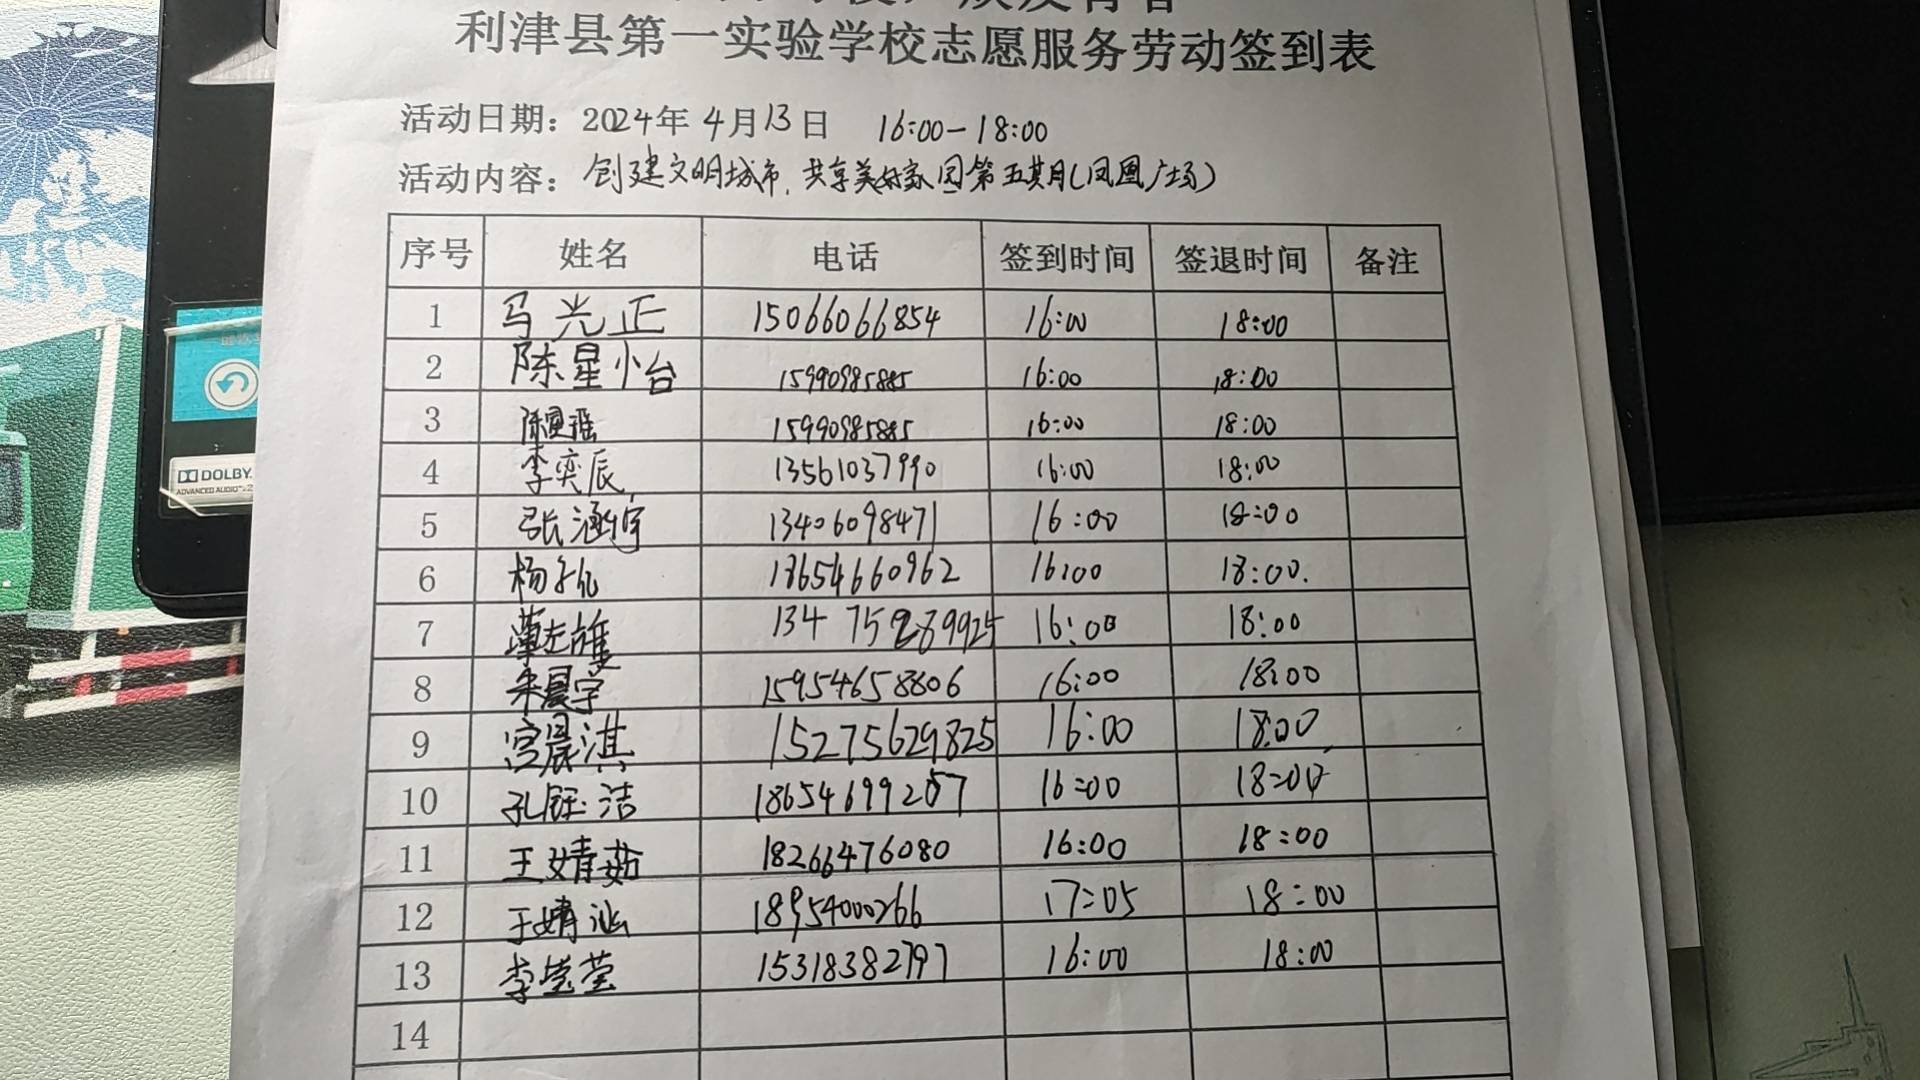 利津县第一实验学校志愿服务劳动签到表
活动日期：2024年4月13日 16:00-18:00
活动内容：创建文明城市，共享美好家园第五期(凤凰广场)
序号 姓名 电话 签到时间 签退时间 备注
1 马光正 15066066854 16:00 18:00
2 陈星小台 15990985885 16:00 18:00
3 陈 15990985885 16:00 18:00
4 李奕辰 13561037990 16:00 18:00
5 张涵宇 13406098471 16:00 18:00
6 杨 18654660962 16:00 18:00.
7 134 75289925 16:00 18:00
8 朱晨宇 15954658806 16:00 18:00
9 宫晨淇 15275629825 16:00 18:00
10 孔钰洁 18654699207 16:00 18:00
11 王婧茹 18266476080 16:00 18:00
12 于婧涵 18954000266 17:05 18:00
13 李莹莹 15318382797 16:00 18:00
14
DOLBY
ADVANCED AUDIO